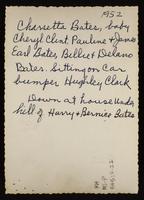 1952
Charsetta Bates, baby
Cheryl Clint, Pauline & James
Earl Bates, Billie & Delano
Bates. Sitting on Car
bumper Hughley Clark
Down at house under
hill of Harry & Bernice Bates